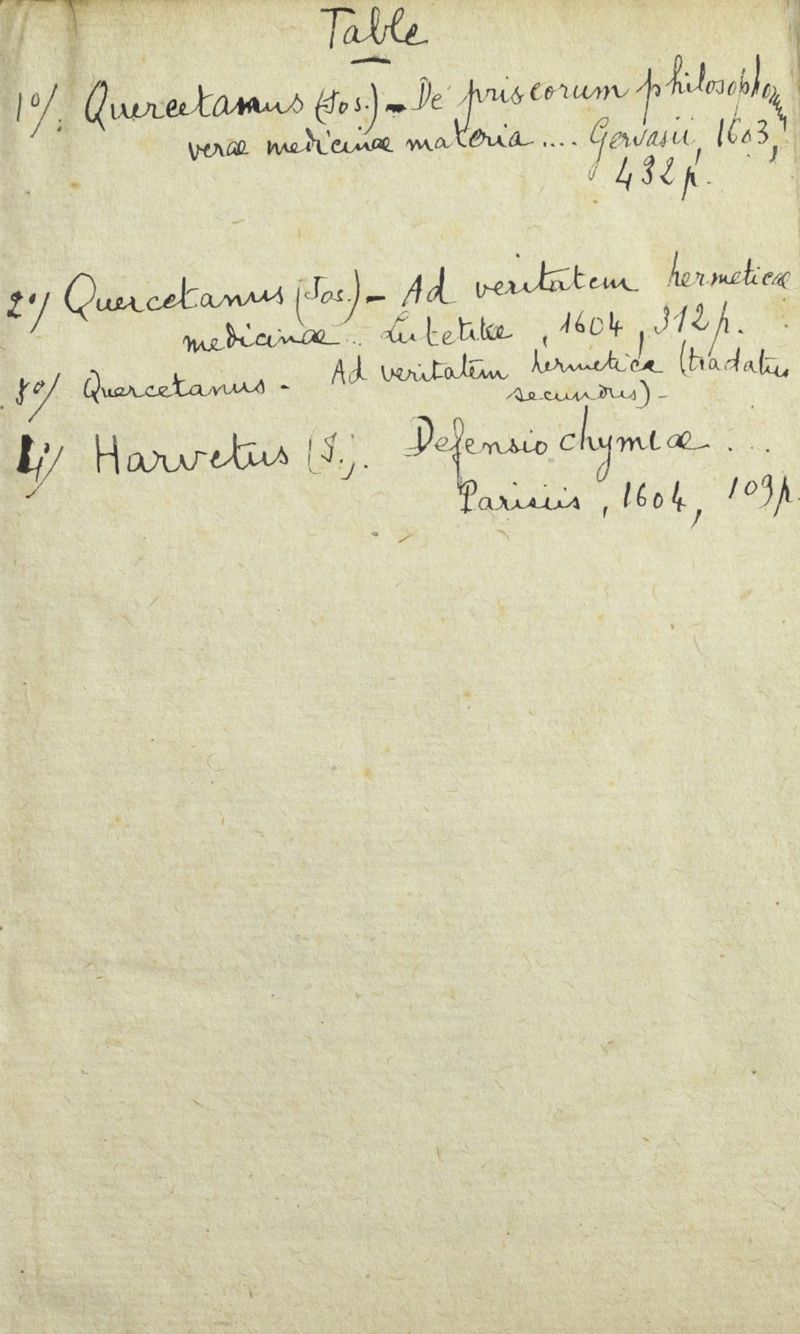 Table
1°/. Quercetanus (Jos.) - De priscorum philosophorum
verae medicinae materia .... Gervasii, 1603,
432 p.
2°/ Quercetanus (Jos.) - Ad veritatem hermeticae
medicinae .. Lutetiae, 1604, 312 p.
3°/ Quercetanus - Ad veritatem hermeticae (tractatus
secundus) -
4°/ Harvetus (I.). Defensio chymiae ...
Parisiis, 1604, 109 p.